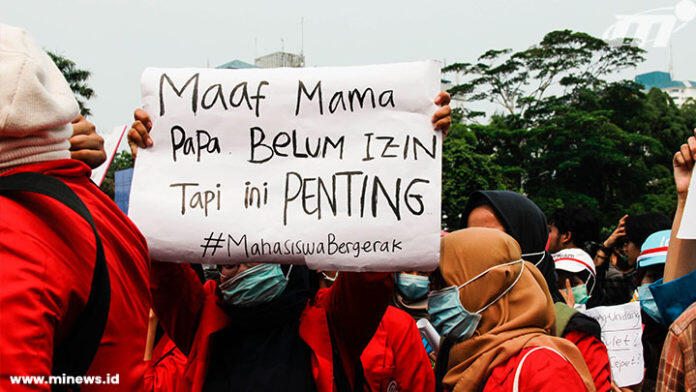 Maaf Mama
Papa. BELUM IZIN
Tapi ini PENTING
#MahasiswaBergerak
www.minews.id